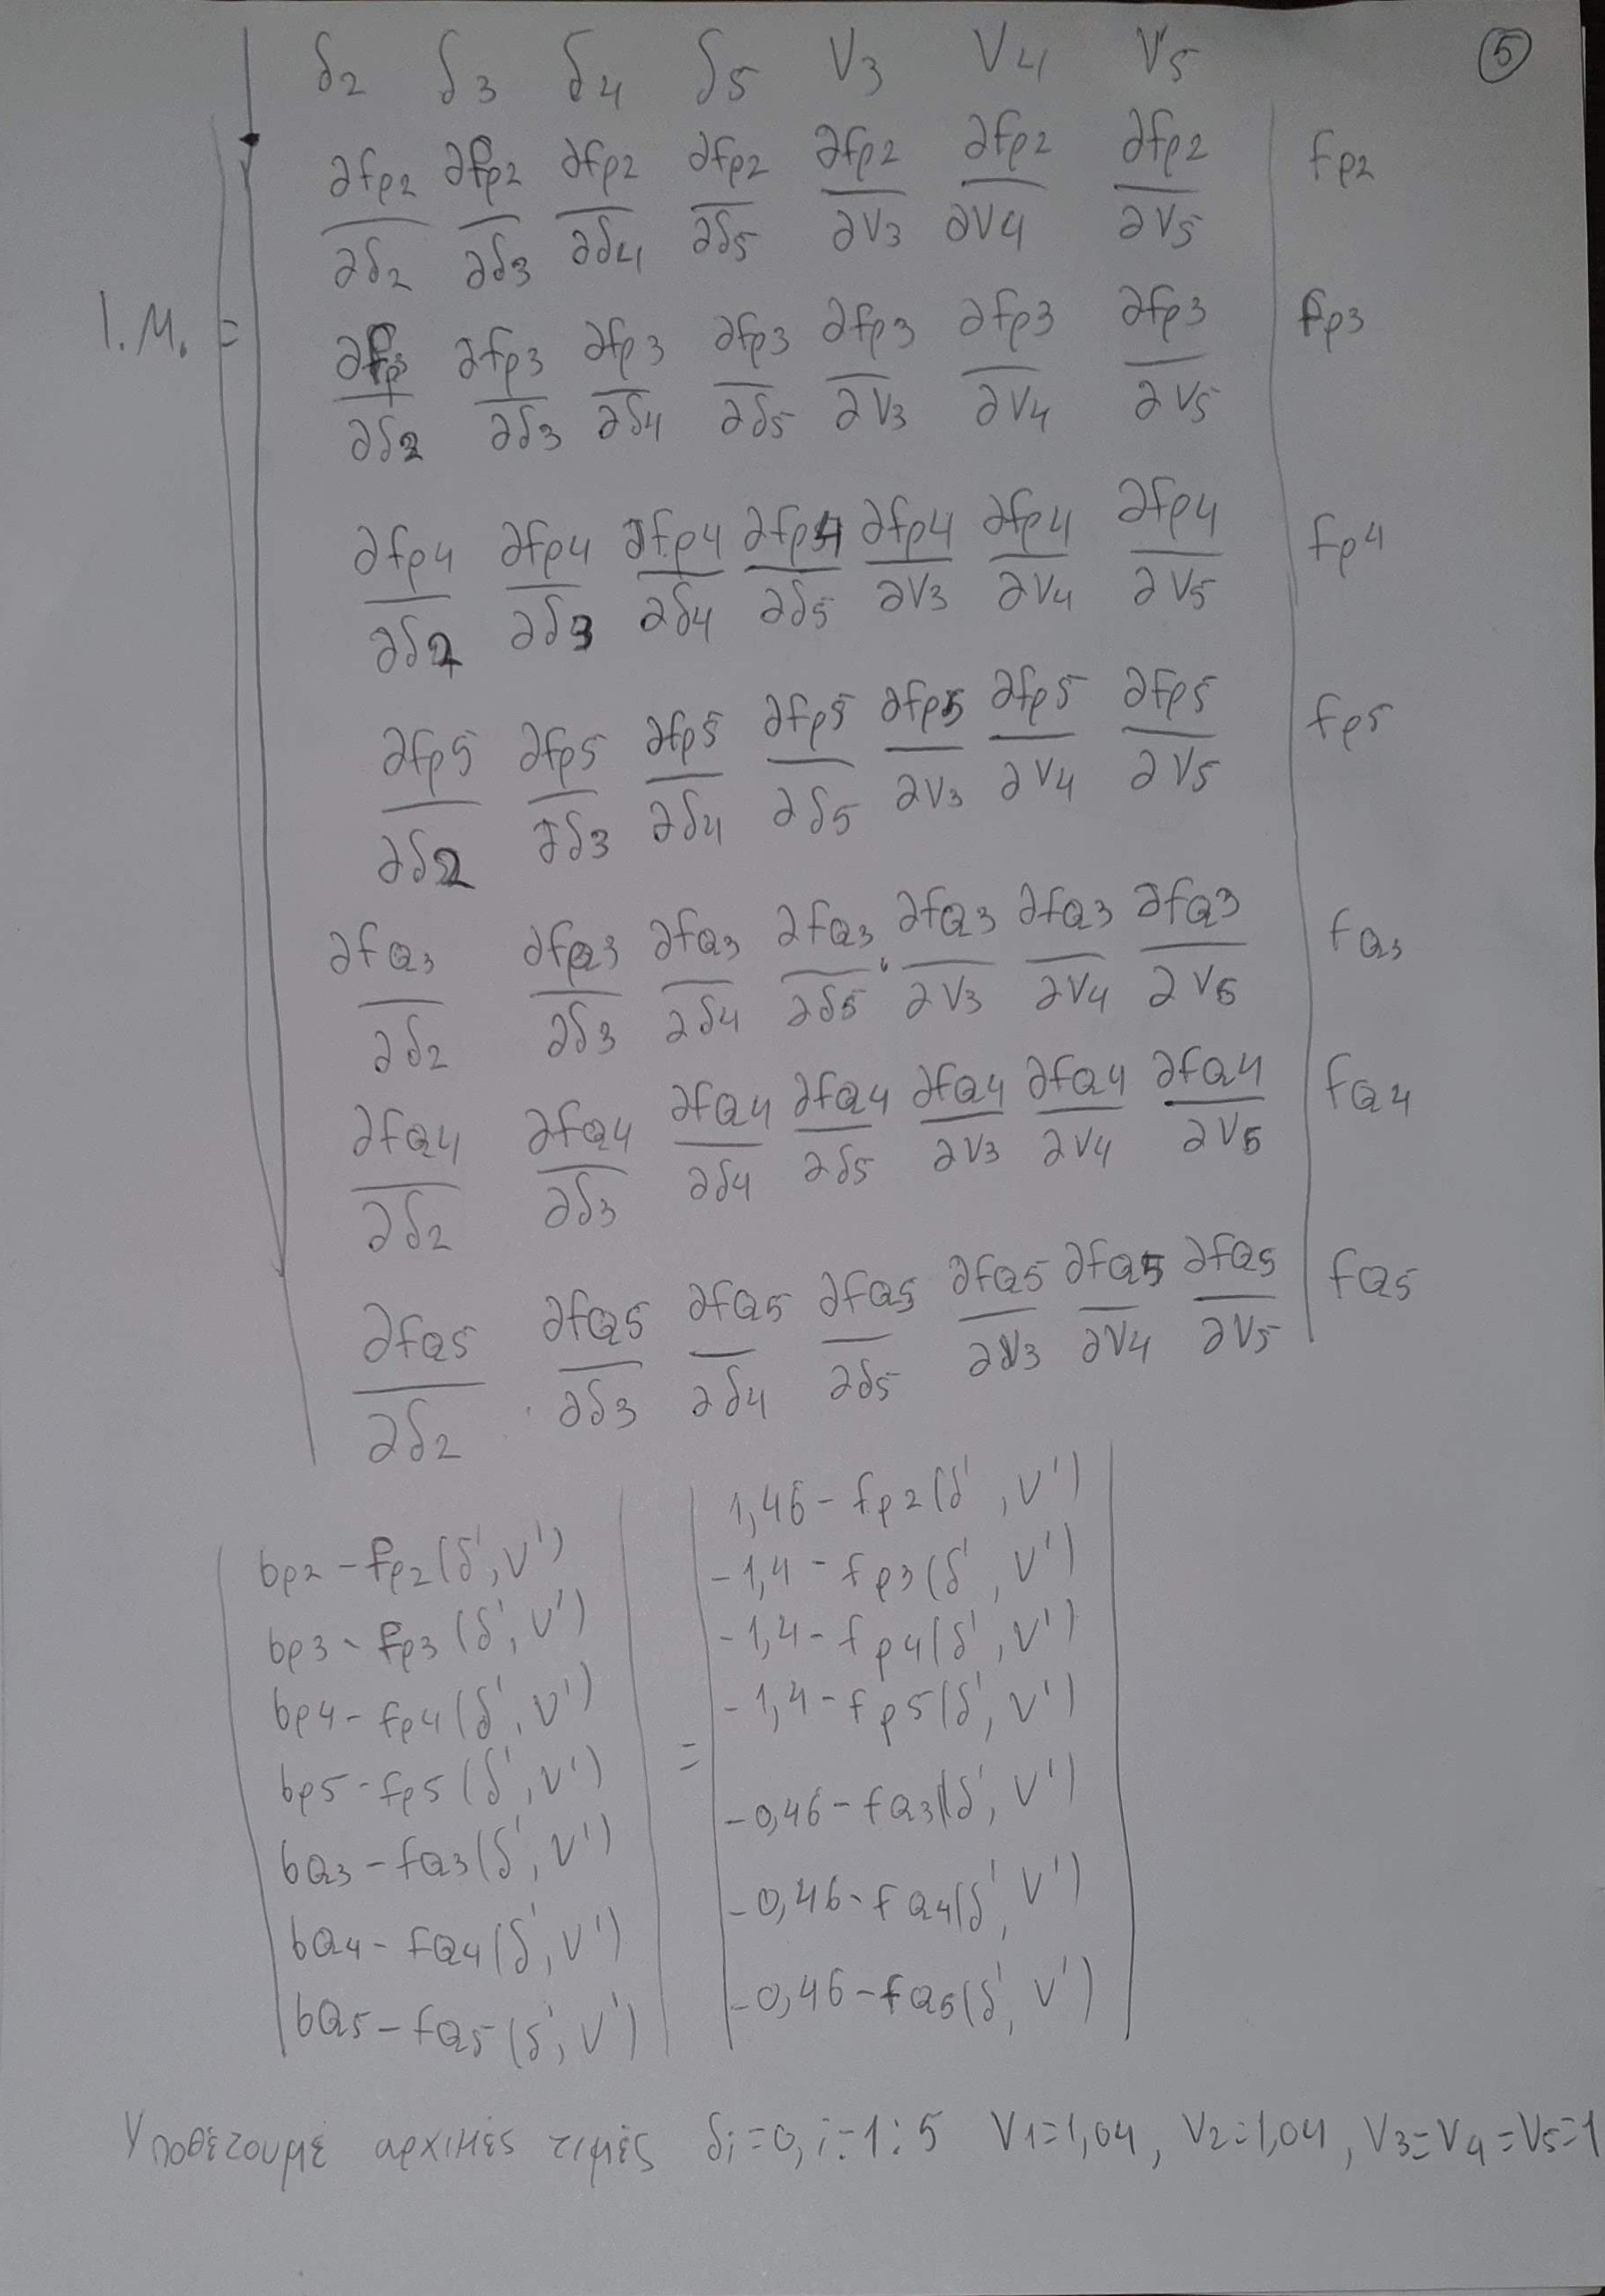 δ2 δ3 δ4 δ5 V3 V4 V5 ⑤
∂fp2/∂δ2 ∂fp2/∂δ3 ∂fp2/∂δ4 ∂fp2/∂δ5 ∂fp2/∂V3 ∂fp2/∂V4 ∂fp2/∂V5 fp2
Ι.Μ. = ∂fp3/∂δ2 ∂fp3/∂δ3 ∂fp3/∂δ4 ∂fp3/∂δ5 ∂fp3/∂V3 ∂fp3/∂V4 ∂fp3/∂V5 fp3
∂fp4/∂δ2 ∂fp4/∂δ3 ∂fp4/∂δ4 ∂fp4/∂δ5 ∂fp4/∂V3 ∂fp4/∂V4 ∂fp4/∂V5 fp4
∂fp5/∂δ2 ∂fp5/∂δ3 ∂fp5/∂δ4 ∂fp5/∂δ5 ∂fp5/∂V3 ∂fp5/∂V4 ∂fp5/∂V5 fp5
∂fQ3/∂δ2 ∂fQ3/∂δ3 ∂fQ3/∂δ4 ∂fQ3/∂δ5 ∂fQ3/∂V3 ∂fQ3/∂V4 ∂fQ3/∂V5 fQ3
∂fQ4/∂δ2 ∂fQ4/∂δ3 ∂fQ4/∂δ4 ∂fQ4/∂δ5 ∂fQ4/∂V3 ∂fQ4/∂V4 ∂fQ4/∂V5 fQ4
∂fQ5/∂δ2 ∂fQ5/∂δ3 ∂fQ5/∂δ4 ∂fQ5/∂δ5 ∂fQ5/∂V3 ∂fQ5/∂V4 ∂fQ5/∂V5 fQ5
bp2 - fp2(δ', V') 1,46 - fp2(δ', V')
bp3 - fp3(δ', V') -1,4 - fp3(δ', V')
bp4 - fp4(δ', V') -1,4 - fp4(δ', V')
bp5 - fp5(δ', V') = -1,4 - fp5(δ', V')
bQ3 - fQ3(δ', V') -0,46 - fQ3(δ', V')
bQ4 - fQ4(δ', V') -0,46 - fQ4(δ', V')
bQ5 - fQ5(δ', V') -0,46 - fQ5(δ', V')
Υποθέτουμε αρχικές τιμές δi=0, i=1:5 V1=1,04, V2=1,04, V3=V4=V5=1